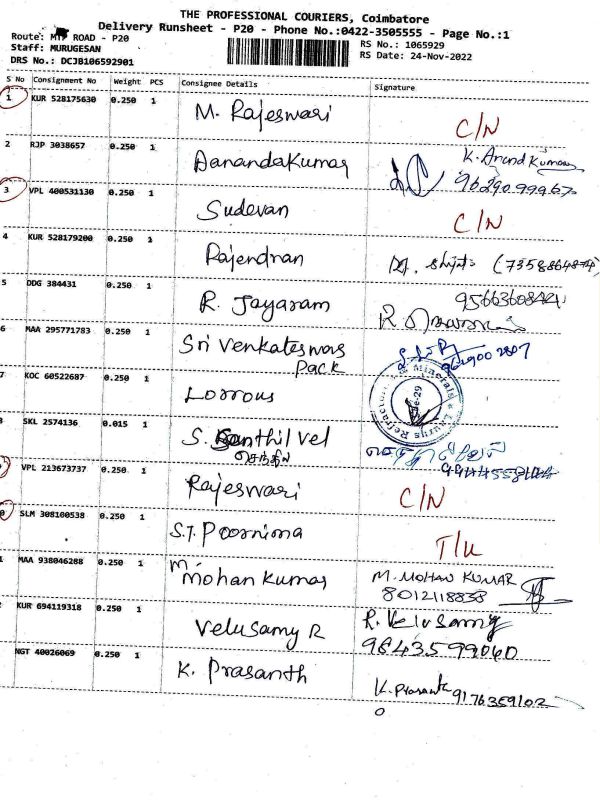 THE PROFESSIONAL COURIERS, Coimbatore
Delivery Runsheet - P20 - Phone No.:0422-3505555 - Page No.:1
Route: MTP ROAD - P20
Staff: MURUGESAN
DRS No.: DCJB106592901
RS No.: 1065929
RS Date: 24-Nov-2022
S No Consignment No Weight PCS Consignee Details Signature
1 KUR 528175630 0.250 1 M. Rajeswari C/N
2 RJP 3038657 0.250 1 AanandaKumar K. Anand Kumar
3 VPL 400531130 0.250 1 Sudevan C/N
4 KUR 528179200 0.250 1 Rajendran
5 DDG 384431 0.250 1 R. Jayaram
6 MAA 295771783 0.250 1 Sri Venkateswar
Pack
7 KOC 60522687 0.250 1
SKL 2574136 0.015 1 S. Senthil Vel
செந்தில்
VPL 213673737 0.250 1 Rajeswari C/N
SLM 308100538 0.250 1 S.T. Poornima
MAA 938046288 0.250 1 M. Mohan Kumar M. MOHAN KUMAR
8012118838
KUR 694119318 0.250 1 Velusamy R R. Velusamy
9843599040
NGT 40026069 0.250 1 K. Prasanth K. Prasanth 9176359102